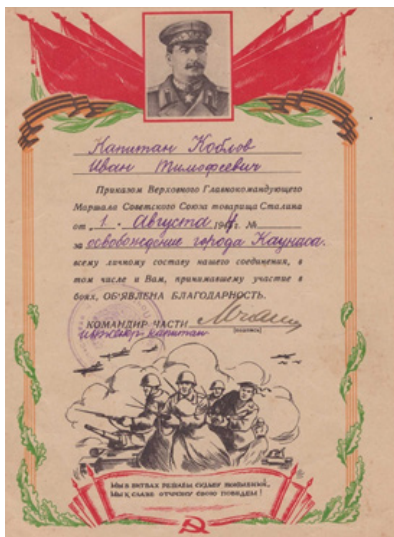 Капитан Коблов
Иван Тимофеевич
Приказом Верховного Главнокомандующего
Маршала Советского Союза товарища Сталина
от „1 · Августа 1944г. №
за освобождение города Каунаса.
всему личному составу нашего соединения, в
том числе и Вам, принимавшему участие в
боях, ОБ'ЯВЛЕНА БЛАГОДАРНОСТЬ.
КОМАНДИР ЧАСТИ
(подпись)
инженер капитан
МЫ В БИТВАХ РЕШАЕМ СУДЬБУ ПОКОЛЕНИЙ,
МЫ К СЛАВЕ ОТЧИЗНУ СВОЮ ПОВЕДЕМ!